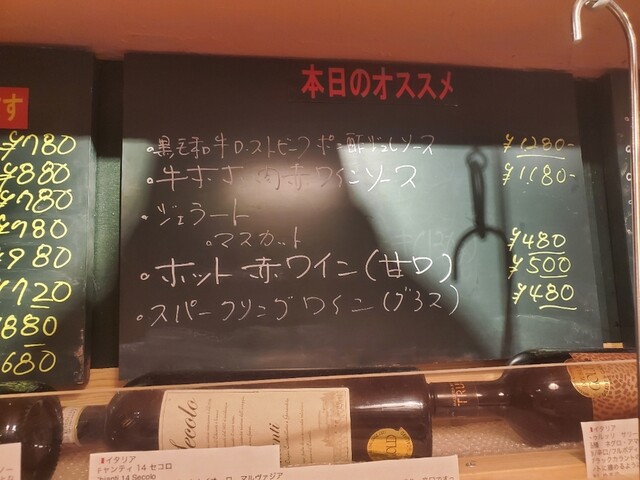 本日のオススメ
・黒毛和牛ローストビーフ ポン酢ジュレソース ¥1280-
・牛ホホ肉赤ワインソース ¥1,180-
・ジェラート
。マスカット ¥480
・ホット赤ワイン(甘口) ¥500
・スパークリングワイン(グラス) ¥480
す
¥780
¥880
¥780
¥980
¥980
¥720
880
680
Secolo
GOLD
イタリア
キャンティ 14 セコロ
Chianti 14 Secolo
マルヴァジア
イタリア